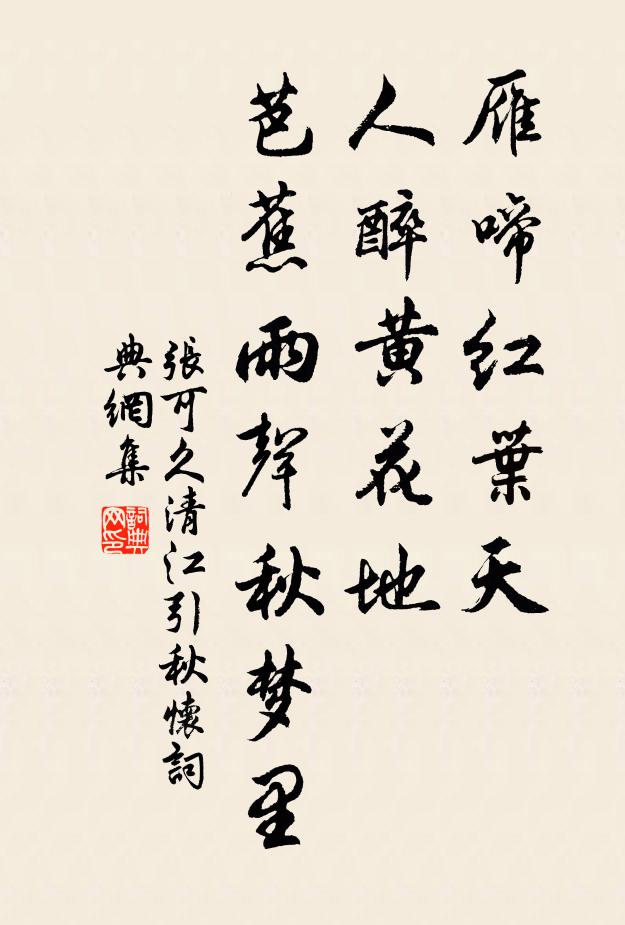 雁啼红葉天
人醉黄花地
芭蕉雨聲秋梦里
張可久清江引秋懷詞
典網集
詞典
网印